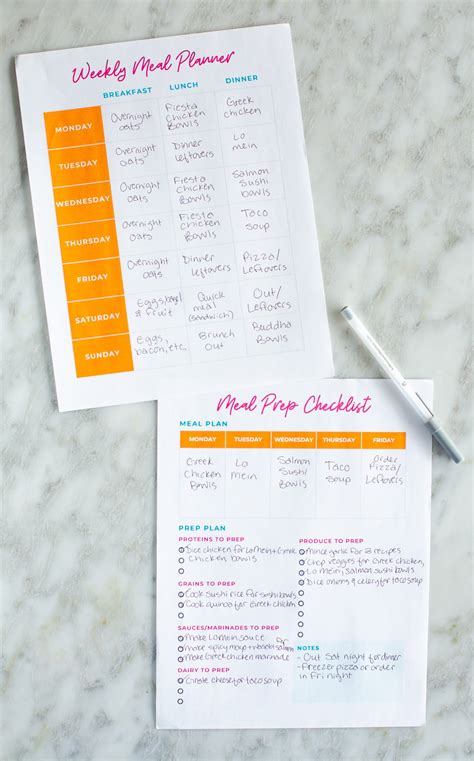 Weekly Meal Planner
BREAKFAST LUNCH DINNER
MONDAY
Overnight
oats
Fiesta
chicken
Bowls
Greek
chicken
TUESDAY
Overnight
oats
Dinner
leftovers
Lo
mein
WEDNESDAY
Overnight
oats
Fiesta
chicken
Bowls
Salmon
Sushi
Bowls
THURSDAY
Overnight
oats
Fiesta
chicken
Bowls
Taco
soup
FRIDAY
Overnight
oats
Dinner
leftovers
Pizza/
Leftovers
SATURDAY
Eggs,
& fruit
Quick
meal
(sandwich)
Out/
Leftovers
SUNDAY
Eggs,
bacon, etc.
Brunch
Out
Buddha
Bowls
Meal Prep Checklist
MEAL PLAN
MONDAY TUESDAY WEDNESDAY THURSDAY FRIDAY
Greek
Chicken
Bowls
Lo
mein
Salmon
Sushi
Bowls
Taco
soup
order
Pizza/
Leftovers
PREP PLAN
PROTEINS TO PREP
Dice chicken for Lo mein + Greek
chicken bowls
GRAINS TO PREP
Cook sushi rice for sushi bowls
Cook quinoa for Greek chicken
SAUCES/MARINADES TO PREP
Make Lo mein sauce
make spicy mayo + for salmon
Make Greek chicken marinade
DAIRY TO PREP
Grate cheese for taco soup
PRODUCE TO PREP
Mince garlic for recipes
Chop veggies for Greek chicken
Lo mein, salmon sushi bowls
Dice onions & celery for taco soup
NOTES
- Out Sat night for dinner
- Freezer pizza or order
in Fri night